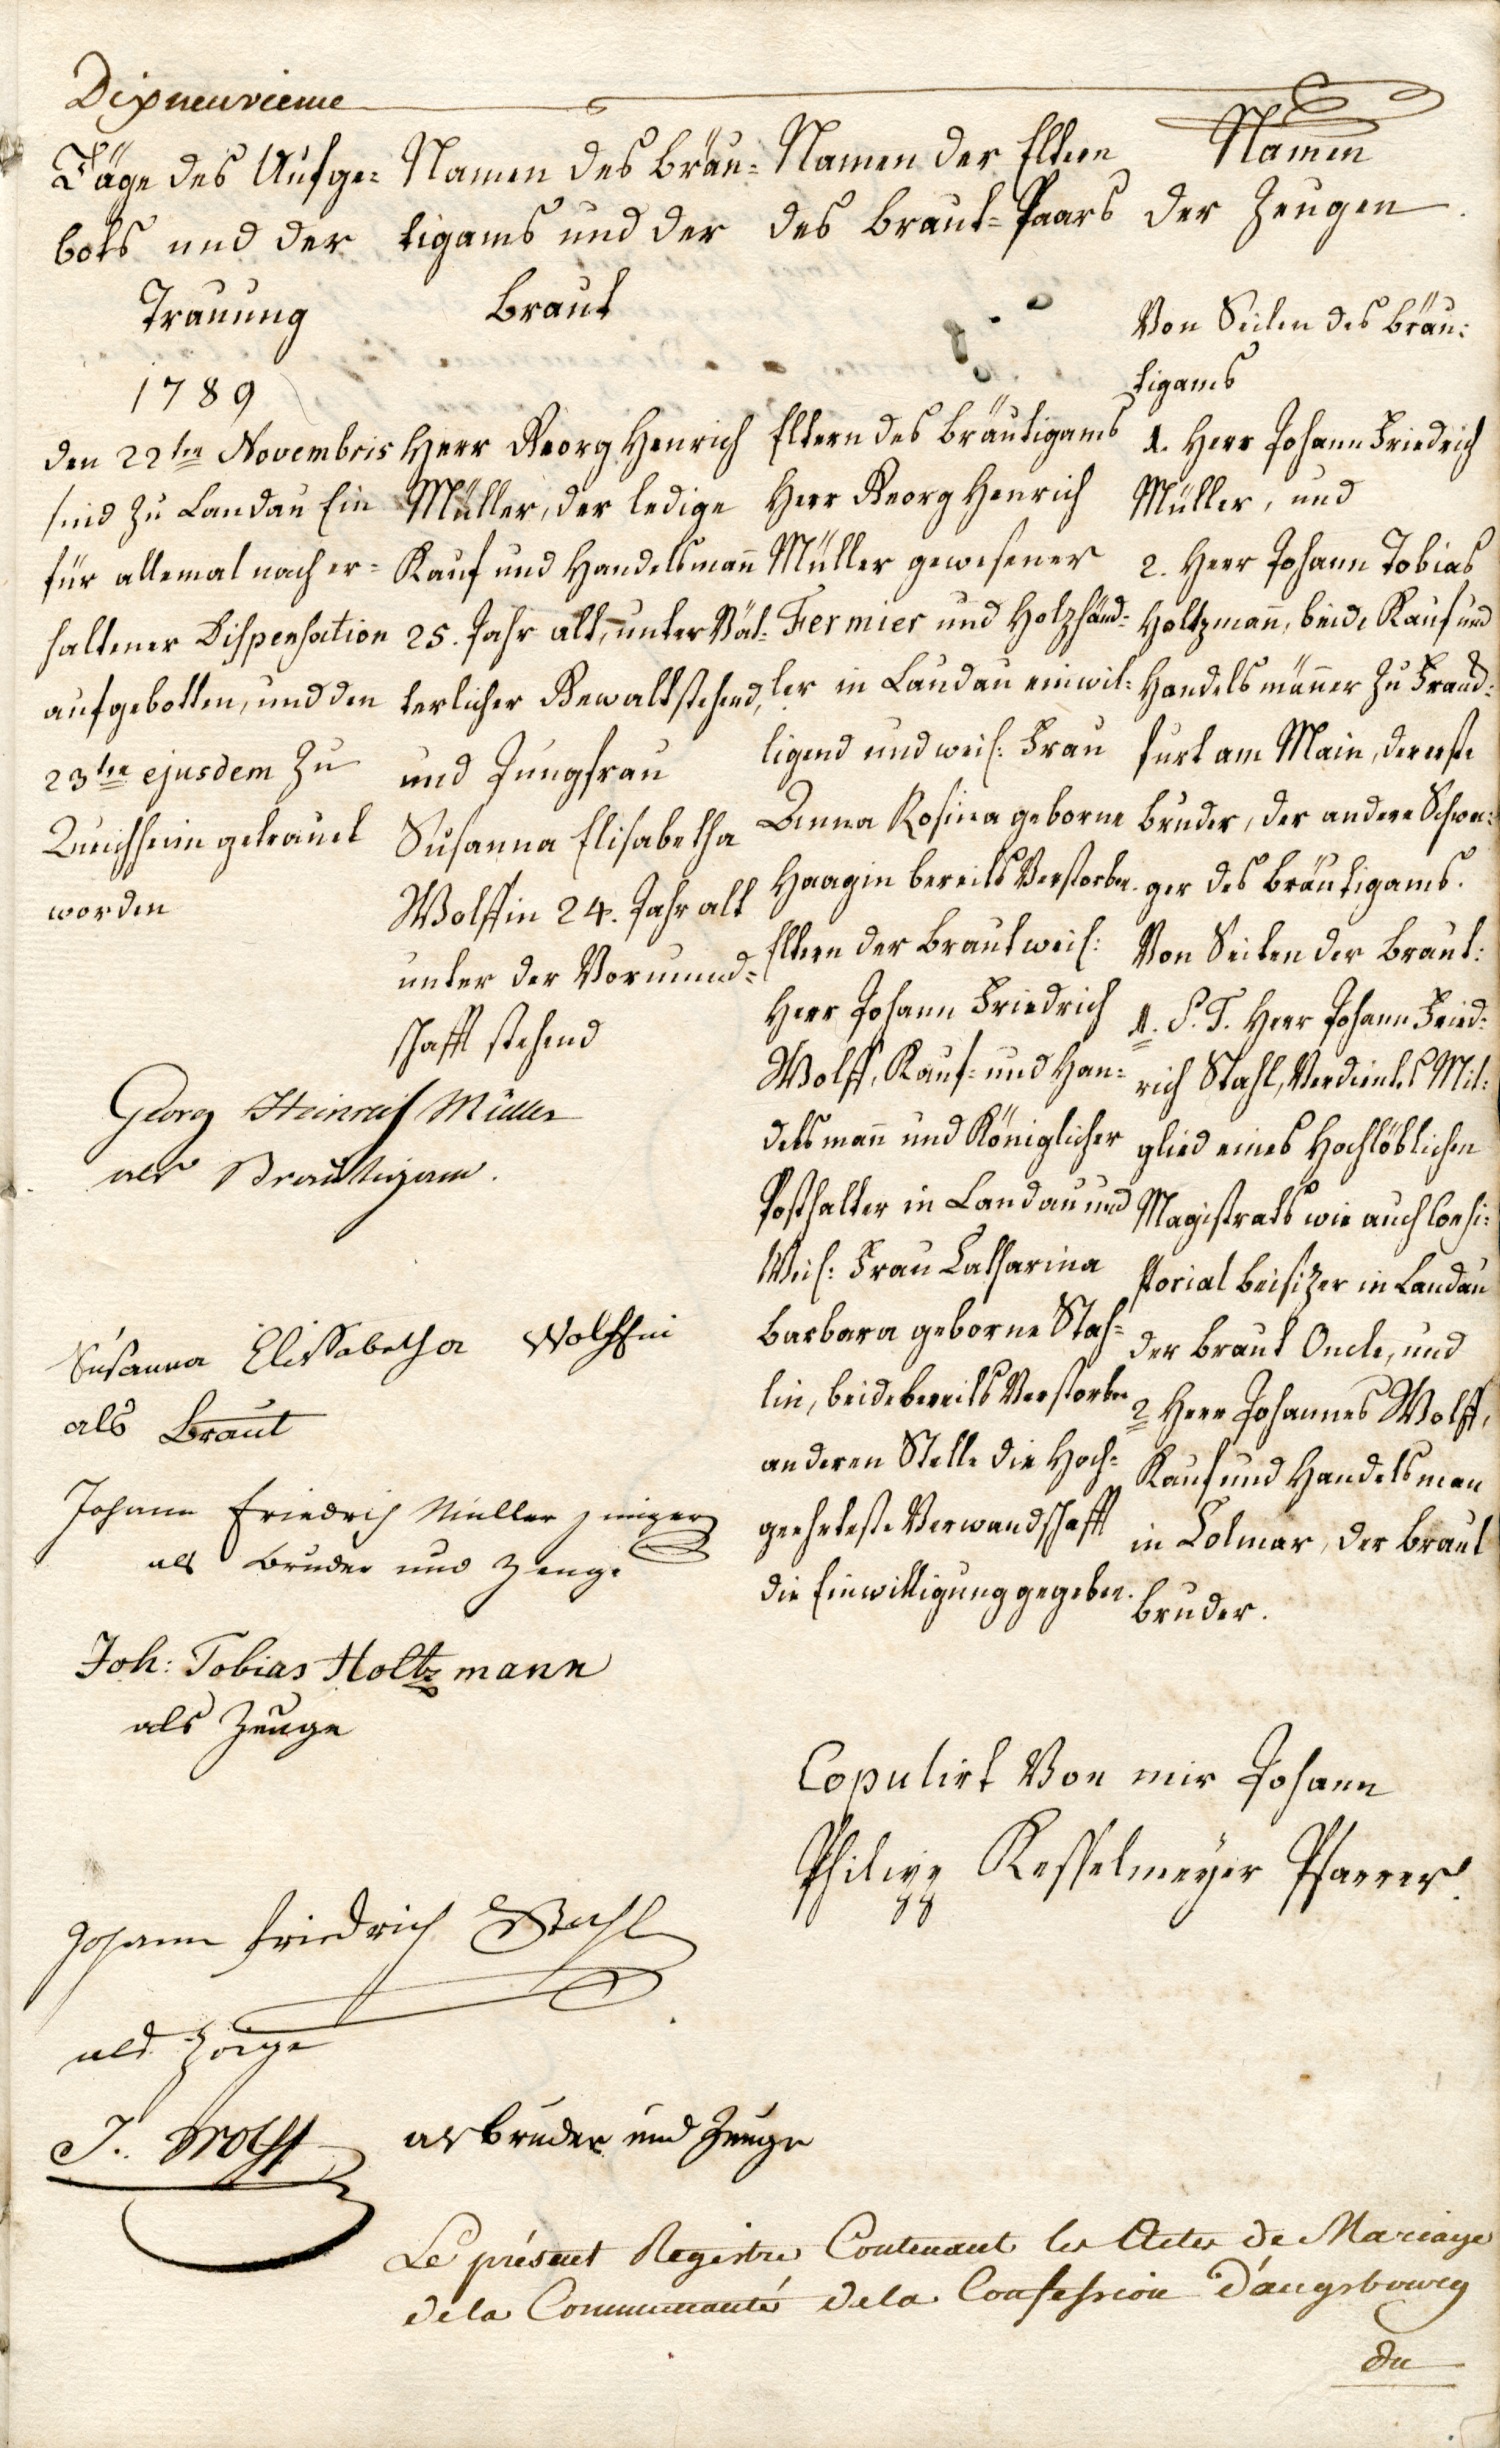 Dixneuvieme
Täge des Aufge=
bots und der
Trauung
1789
den 22ten Novembris
sind zu Landau Ein
für allemal nach er=
haltener Dispensation
aufgebotten, und den
23ten ejusdem zu
Queichheim getraut
worden
Namen des Bräu=
tigams und der
Braut
Herr Georg Henrich
Müller, der ledige
Kauf und Handelsman̄
25. Jahr alt, unter Vät=
terlicher Gewalt stehend,
und Jungfrau
Susanna Elisabetha
Wolffin 24. Jahr alt
unter der Vormund=
schafft stehend
Namen der Eltern
des Braut=Paars
Eltern des Bräutigams
Herr Georg Henrich
Müller gewesener
Fermier und Holzhänd=
ler in Landau einwil=
ligend und weil: Frau
Anna Rosina geborne
Haagin bereits Verstorben.
Eltern der Braut weil:
Herr Johann Friedrich
Wolff, Kauf= und Han=
delsman̄ und Königlicher
Posthalter in Landau und
Weil: Frau Catharina
Barbara geborne Stah=
lin, beide bereits Verstorben
an deren Stelle die Hoch=
geehrteste Verwandschafft
die Einwilligung gegeben.
Namen
der Zeugen.
Von Seiten des Bräu=
tigams
1. Herr Johann Friedrich
Müller, und
2. Herr Johann Tobias
Holtzman̄, beide Kauf und
Handelsmän̄er zu Franck=
furt am Main, der erste
Bruder, der andere Schwa=
ger des Bräutigams.
Von Seiten der Braut:
1. S. T. Herr Johann Fried=
rich Stahl, Verdientes Mit=
glied eines Hochlöblichen
Magistrats wie auch Consi=
storial Beisizer in Landau
der Braut Oncle, und
2 Herr Johannes Wolff,
Kauf und Handelsman
in Colmar, der Braut
Bruder.
Georg Heinrich Müller
als Bräutigam.
Susanna Elissabetha Wolffin
als Braut
Johann Friedrich Müller jünger
als Bruder und Zeuge
Joh: Tobias Holtzmann
als Zeuge
Copulirt Von mir Johann
Philipp Kesselmeÿer Pfarrer.
Johann Friedrich Stahl
als Zeige
J. Wolff als Bruder und Zeuge
Le présent Registre Contenant les Actes de Mariage
de la Communauté de la Confession d'augsbourg
du